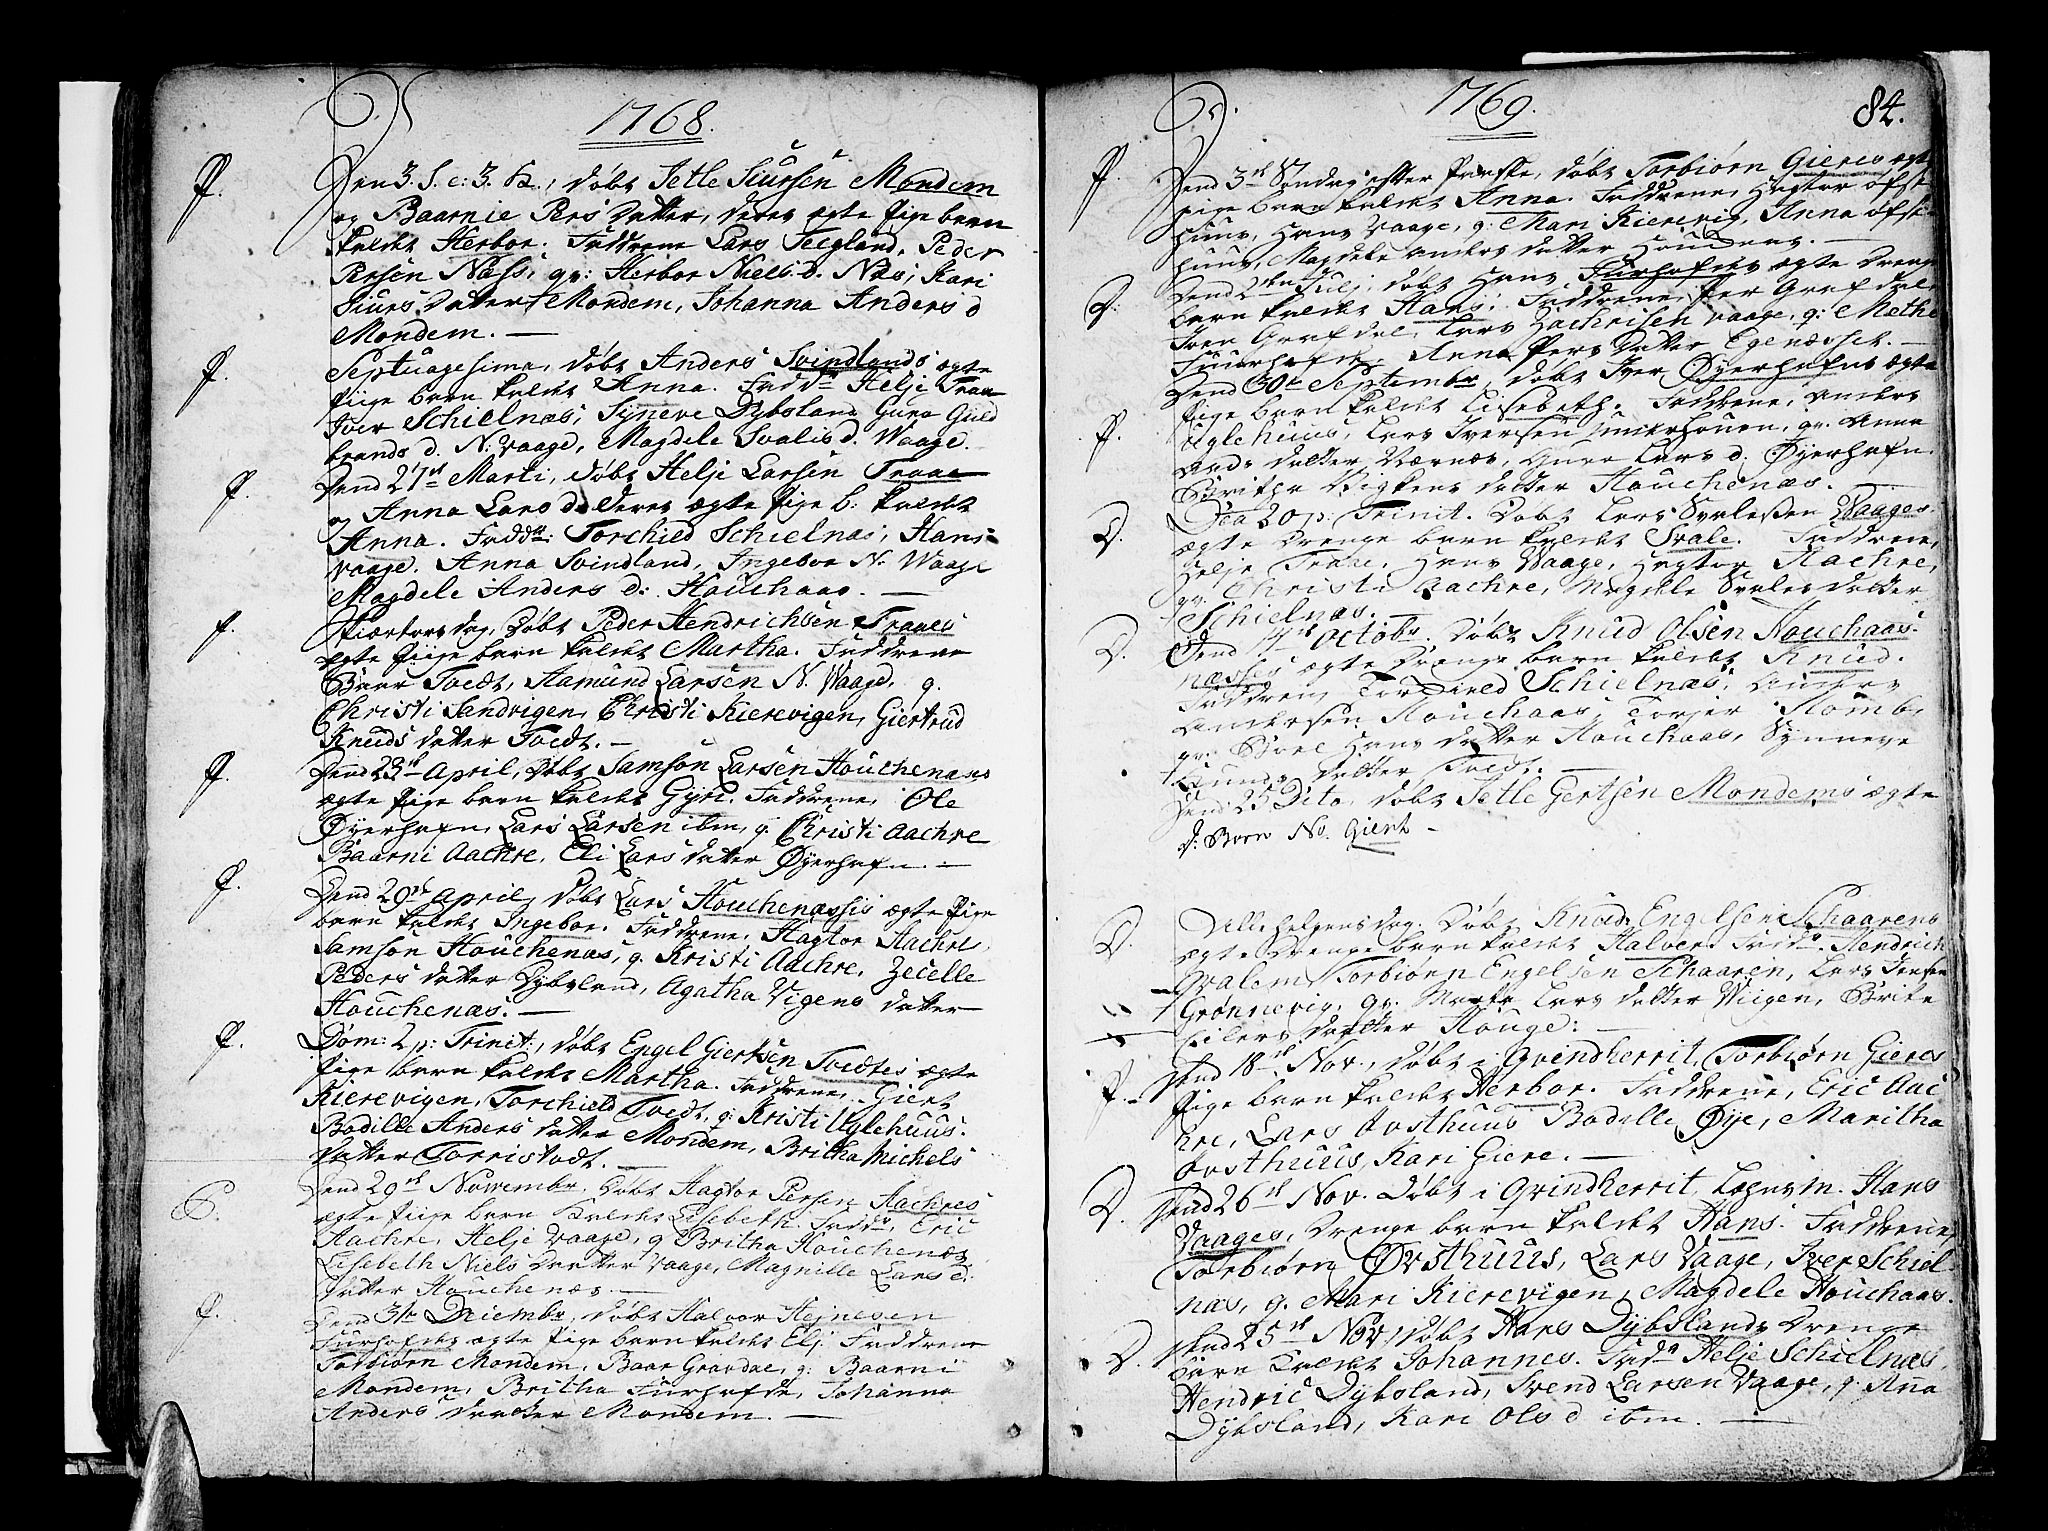 1768.
P. Den 3. S. e: 3. K., döbt Jetle Siursen Mondem
og Baarnie Pers Datter, deres ægte Pige barn
kaldet Herbor. Fadderne Lars Teigland, Peder
Persen Næss, qv: Herbor Niels d. Næs, Kari
Siurs Datter Mondem, Johanna Anders d
Mondem. —
P. Septuagesima, döbt Anders Svindlands ægte
Piige barn kaldet Anna. Fadd: Helje Traae
Iver Schielnæs, Syneve Dybsland Guro Guld
brands d. N. Vaage, Magdele Svalis d. Waage.
P. Dend 27de Marti, döbt Helje Larsen Traae
og Anna Lars d. deres ægte Pige b: kaldet
Anna. Fadd: Torchied Schielnæs, Hans
Vaage. Anna Svindland, Ingebor N. Waage
Magdele Anders d: Houchaas. —
P. Skiærtorsdag, Döbt Peder Hendrichsen Traaes
ægte Piige barn kaldet Martha. Fadderne
Baar Tvedt, Aamund Larsen N. Waage, q.
Christi Sandvigen, Christi Kierevigen, Giertrud
Knuds datter Tvedt. —
P. Dend 23de April, döbt Samson Larsen Houchenæses
ægte Pige barn kaldet Gyri. Fadderne, Ole
Øyerhafn, Lars Larsen ibm, q. Christi Aachre
Baarni Aachre, Eli Lars datter Øyerhafn. —
P. Dend 29de April, döbt Lars Houchenæssis ægte Pige
barn kaldet Ingebor. Fadderne, Hagtor Aachre,
Samson Houchenæs, q. Kristi Aachre, Zecelle
Peders datter Dybsland, Agatha Vigens datter
Houchenæs. —
P. Dom: 2 p: Trinit:, döbt Engel Giertsen Tvedtes ægte
Pige barn kaldet Martha. Fadderne, Giert
Kierevigen, Torchield Tvedt, q: Kristi Uglehuus.
Bodille Anders datter Mondem, Britha Michels
datter Torristvedt. —
P. Dend 29de Novembr, Döbt Hagtor Persen Aachres
ægte Piige barn kaldet Lisebeth. Fadd:, Eric
Aachre, Helje Vaage, q Britha Houchenæs
Lisebeth Niels Datter Vaage, Magnille Lars d.
datter Houchenæs. —
P. Dend 31te Decembr, döbt Halvor Hejnesen
Furhofdes ægte Pige barn kaldet Elj. Fadderne
Torbiörn Mondem, Baar Gravdae, q: Baarni
Mondem, Britha Furhofde, Johanna
Anders datter Mondem. —
1769.
84.
P. Dend 3de Söndag efter Paaske, döbt Torbiörn Gieres ægte
Pige barn kaldet Anna. Fadderne, Hagtor Øfst-
huus, Hans Vaage, q: Mari Kierevig, Anna Øfst-
huus, Magdele Anders datter Houchaas. —
D: Dend 2den Julj, döbt Hans Furhofdes ægte Drenge
barn kaldet Hans. Fadderne, Per Gravdal
Iver Gravdal, Lars Zachrisen Vaage, q: Methe
Fuurhofde, Anna Pers datter Egenæsset. —
P. Dend 30te Septembr, döbt Iver Øyerhafns ægte
Pige barn kaldet Lisebeth. Fadderne, Anders
Uglehuus, Lars Iversen, qv. Anna
And: datter Værnæs, Lars d. Øyerhafn.
Britha datter Houchenæs. —
D. Dca 20 p: Trinit. döbt Lars Svalesen Waages
ægte Drenge barn kaldet Svale. Fadderne,
Helje Traae, Hans Vaage, Hagtor Aachre,
qv. Christi Aachre, Magdele Svales datter
Schielnæs.
D. Dend Octobr. döbt Knud Olsen Houchaas
næsses ægte Drenge barn kaldet Knud.
Fadderne Torchied Schielnæs, Anders
Andersen Houchaas, Torjer
qv: Hans datter Houchaas, Synneve
Knuds datter Tvedt. —
Dend 25 Dito, döbt Jetle Gertsen Mondems ægte
D: Barn No. Giert —
D. Alle helgensdag. döbt Knud Engelsen Schaarens
ægte Drenge barn kaldet Halver. Fadd: Hendrich
Qvalem Torbiörn Engelsen Schaaren, Lars Jensen
Grönnevig, qv: Marta Lars datter Wiigen, Brite
Eilers datter Houge. —
P. Dend 18de Nov., döbt i Qvindherrit, Torbiörn Gieres
Pige barn kaldet Herbor. Fadderne, Eric Aac
hre, Lars Øvsthuus Bodille Øye, Maritha
Øvsthuus, Kari Giere. —
D. Dend 26de Nov. döbt i Qvindherrit, Hans
Vaages, Drenge barn kaldet Hans. Fadderne,
Torbiörn Øvsthuus, Lars Vaage, Iver Schiel-
næs, q. Mari Kierevigen, Magdele Houchaas.
D. Dend 25de Nov, döbt Hans Dybslands Drenge
barn kaldet Johannes. Fadd: Helje Schielnæs,
Hendric Dybsland, Svend Larsen Vaage, q: Ana
Dybsland, Kari Ols d ibm. —